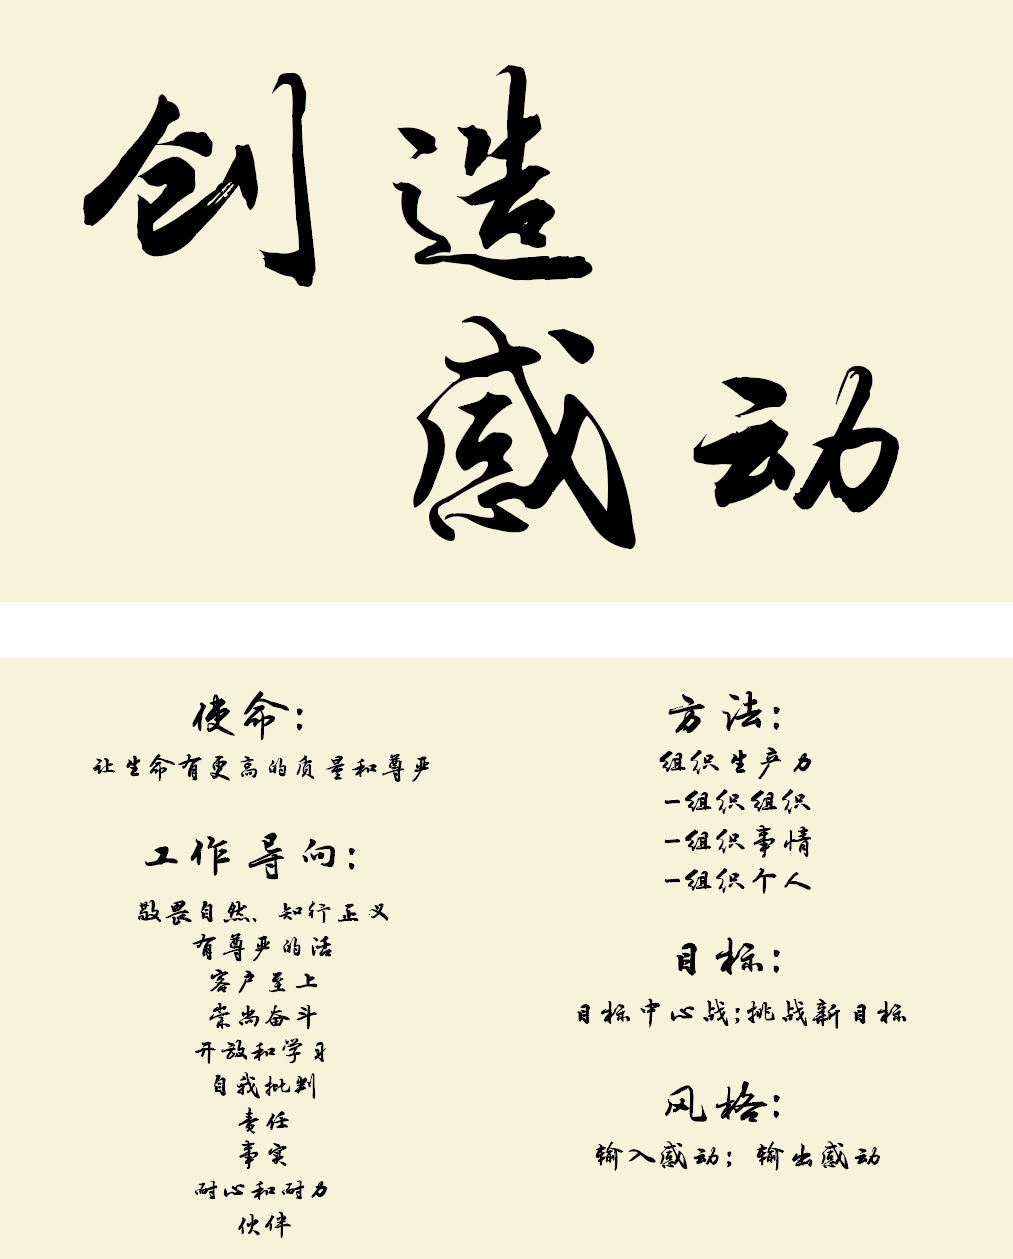 创造
感动
使命：
让生命有更高的质量和尊严
工作导向：
敬畏自然、知行正义
有尊严的活
客户至上
崇尚奋斗
开放和学习
自我批判
责任
事实
耐心和耐力
伙伴
方法：
组织生产力
一组织组织
一组织事情
一组织个人
目标：
目标中心战；挑战新目标
风格：
输入感动；输出感动